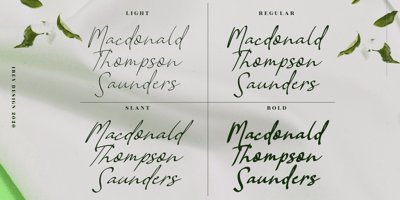 LIGHT
Macdonald
Thompson
Saunders
REGULAR
Macdonald
Thompson
Saunders
SLANT
Macdonald
Thompson
Saunders
BOLD
Macdonald
Thompson
Saunders